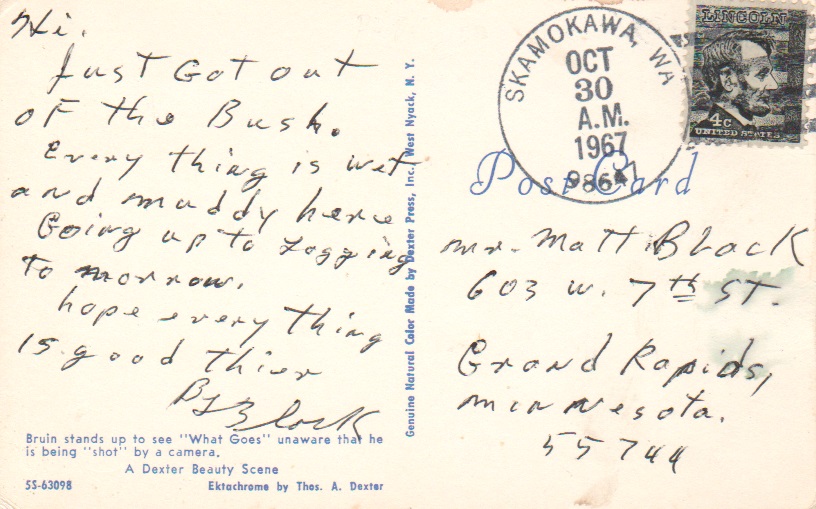 Hi.
Just Got out
of the Bush.
Every thing is wet
and muddy here
Going up to Logging
to morrow.
hope every thing
is good thier
Black
Bruin stands up to see "What Goes" unaware that he
is being "shot" by a camera.
A Dexter Beauty Scene
5S-63098 Ektachrome by Thos. A. Dexter
Genuine Natural Color Made by Dexter Press, Inc., West Nyack, N. Y.
SKAMOKAWA, WA
OCT
30
A.M.
1967
98647
LINCOLN
4c
UNITED STATES
Post Card
mr. Matt Black
603 W. 7th ST.
Grand Rapids,
minnesota.
55744